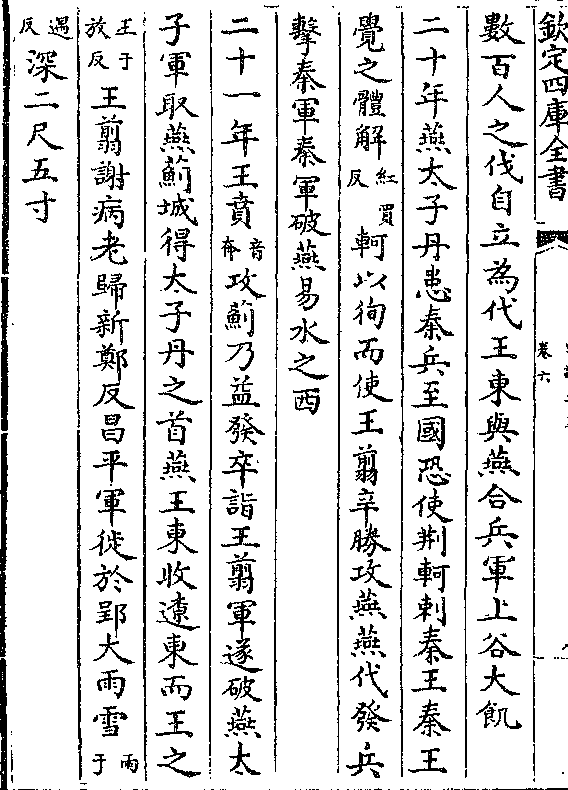 欽定四庫全書
卷六
數百人之代自立為代王東與燕合兵軍上谷大飢
二十年燕太子丹患秦兵至國恐使荆軻刺秦王秦王
覺之體解紅買反軻以徇而使王翦辛勝攻燕燕代發兵
擊秦軍秦軍破燕易水之西
二十一年王賁音奔攻薊乃益發卒詣王翦軍遂破燕太
子軍取燕薊城得太子丹之首燕王東收遼東而王之
王于放反王翦謝病老歸新鄭反昌平軍徙於郢大雨雪雨于
遇反深二尺五寸